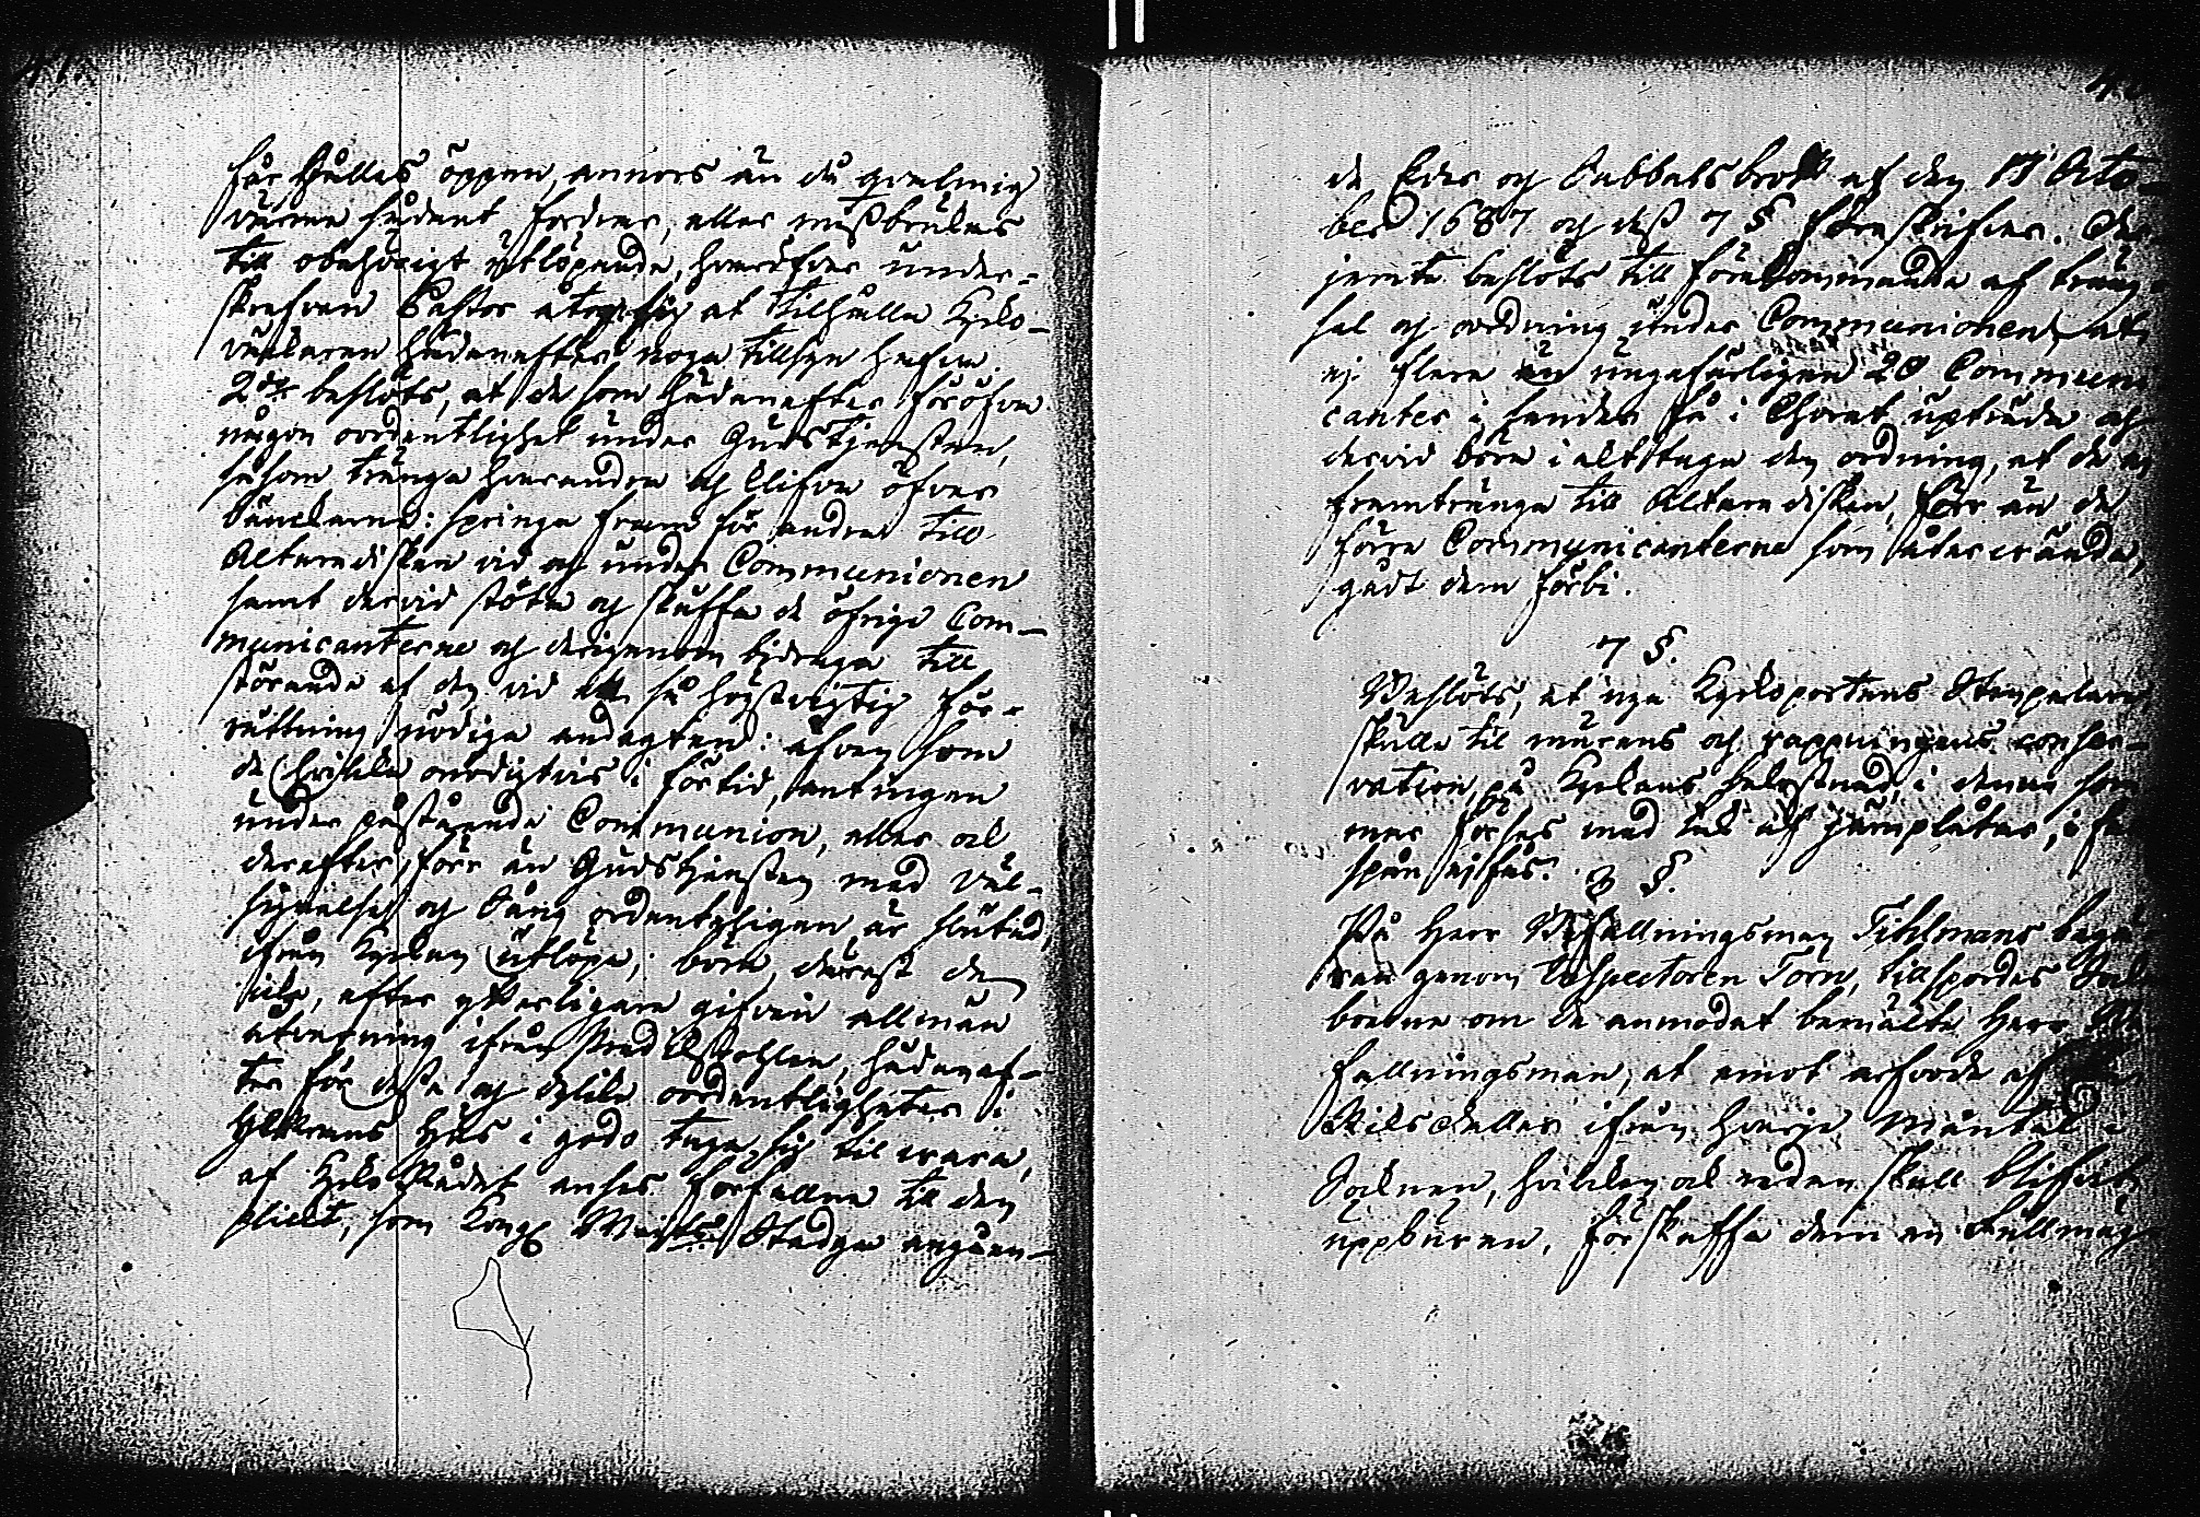 får hållas öppen, annors än då qvalmig
värma sådant fordrar, eller missbrukas
till obehörigt utlöpande, hvaröfver under-
skrefven Pastor åtog sig at tilhålla Kyrko-
väktaren hädanefter noga tillsyn hafva.
2:do beslöts, at de som hädanefter föröfva
någon oordentlighet under Gudstjensten,
såsom tränga hvarandra och klifva öfver
bänckarna: springa fram för andra till
Altaredisken vid och under Communionen
samt dervid stöta och skuffa de öfrige Com-
municanterne och derigenom bidraga till
störande af den vid en så högstvigtig för-
rättning nödiga andagten: äfven som
de hvilka onödigtvis i förtid, antingen
under påstående Communion, eller ock
derefter, förr än Gudstjensten med Väl-
signelse och Sång ordentligen är slutad,
ifrån Kyrkan utlöpa; böra, derest de
icke, efter ytterligare gifven allmän
åtvarning ifrån Predikstohlen, hädanef-
ter för dessa och dylika oordentligheter i
Herrans Hus i godo taga sig til vara,
af Kyrko Rådet anses förfallne till den
plickt, som Kongl. Maj:ts Stadga angåen-
de Eder och Sabbatsbrott af den 17 Octo-
ber 1687 och dess 7 § föreskrifver. Der-
jemte beslöts till förekommande af träng-
sel och oordning under Communionen, at
ej flera än ungefärligen 20 Communi
canter i sender få i Choret upträda och
dervid böra i akt taga den ordning, at de ej
framtränga till Altaredisken, förr än de
förra Communicanterne som återvända,
gådt dem förbi.
7 §.
Beslöts, at nya Kyrkoportens Stenpelare
skulle til murens och rappningens conser-
vation, på Kyrkans bekostnad, i denna som
mar förses med tak af järnplåtar, i fall
spån ej fås.
8 §.
På Herr Befallningsman Tihlmans begä-
ran genom Inspectoren Törn, tillspordes Sock
boerne om de anmodat bemälte Herr Be
fallningsman, at emot arfvode af
Riksdaller ifrån hvarje Mantal i
Socknen, hvilken ock redan skall blifvit
uppburen, förskaffa dem en Fullmäg